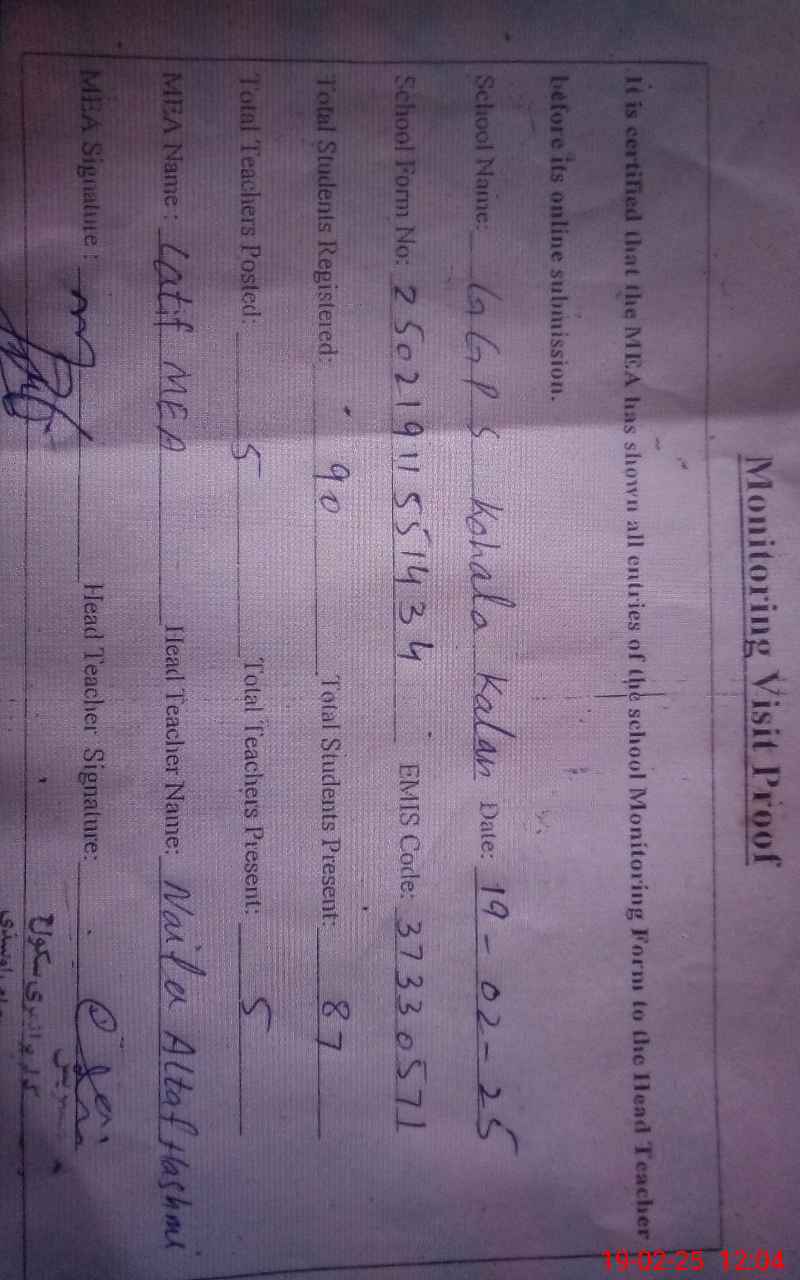 Monitoring Visit Proof
It is certified that the MEA has shown all entries of the school Monitoring Form to the Head Teacher
before its online submission.
School Name: GGPS Kohala Kalan Date: 19-02-25
School Form No: 25021911551434 EMIS Code: 37330571
Total Students Registered: 90 Total Students Present: 87
Total Teachers Posted: 5 Total Teachers Present: 5
MEA Name: Latif MEA Head Teacher Name: Naila Altaf Hashmi
MEA Signature: Head Teacher Signature:
19-02-25 12:04